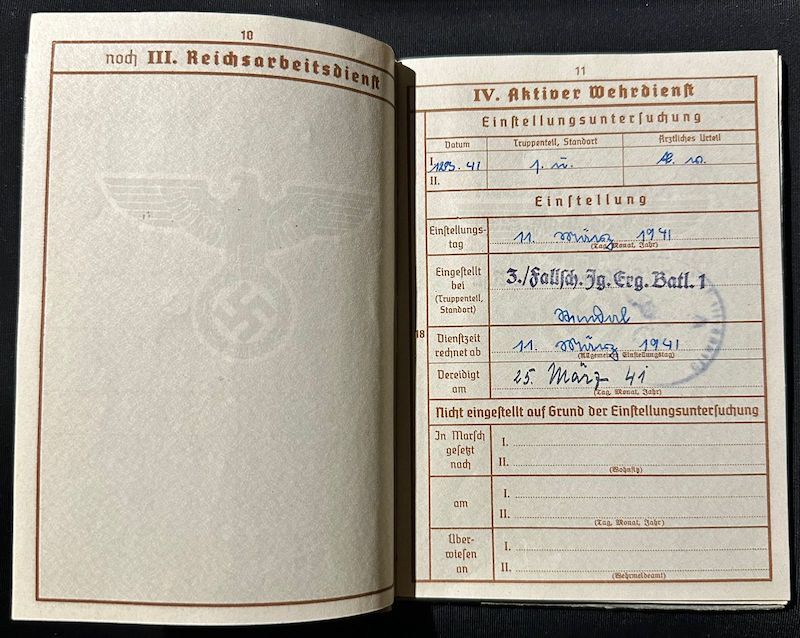 10
noch III. Reichsarbeitsdienst
11
IV. Aktiver Wehrdienst
Einstellungsuntersuchung
Datum Truppenteil, Standort Ärztliches Urteil
I. 41
II.
Einstellung
Einstellungs-
tag
11. März 1941
(Tag, Monat, Jahr)
Eingestellt
bei
(Truppenteil,
Standort)
3./Fallsch. Jg. Erg. Batl. 1
Stendal
18
Dienstzeit
rechnet ab
11. März 1941
(Allgemein. Einstellungstag)
Vereidigt
am
25. März 41
(Tag, Monat, Jahr)
Nicht eingestellt auf Grund der Einstellungsuntersuchung
In Marsch
gesetzt
nach
I.
II.
(Wohnsitz)
am
I.
II.
(Tag, Monat, Jahr)
Über-
wiesen
an
I.
II.
(Wehrmeldeamt)